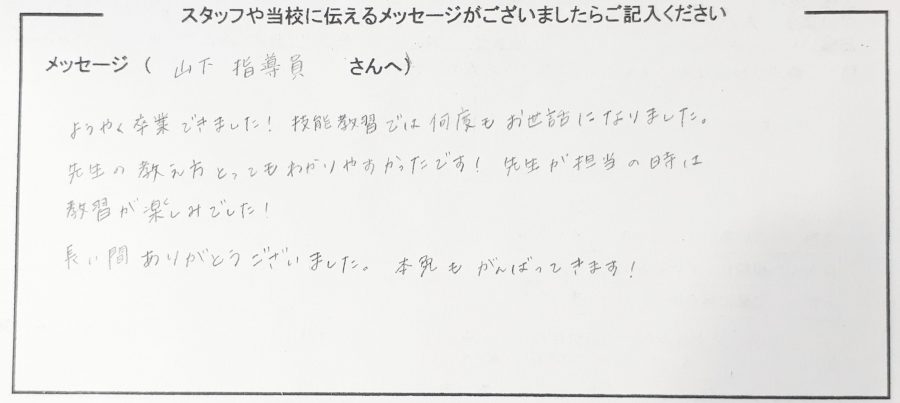 スタッフや当校に伝えるメッセージがございましたらご記入ください
メッセージ ( 山下 指導員 さんへ)
ようやく卒業できました! 技能教習では何度もお世話になりました。
先生の教え方とってもわかりやすかったです! 先生が担当の時は
教習が楽しみでした!
長い間ありがとうございました。 本免もがんばってきます!